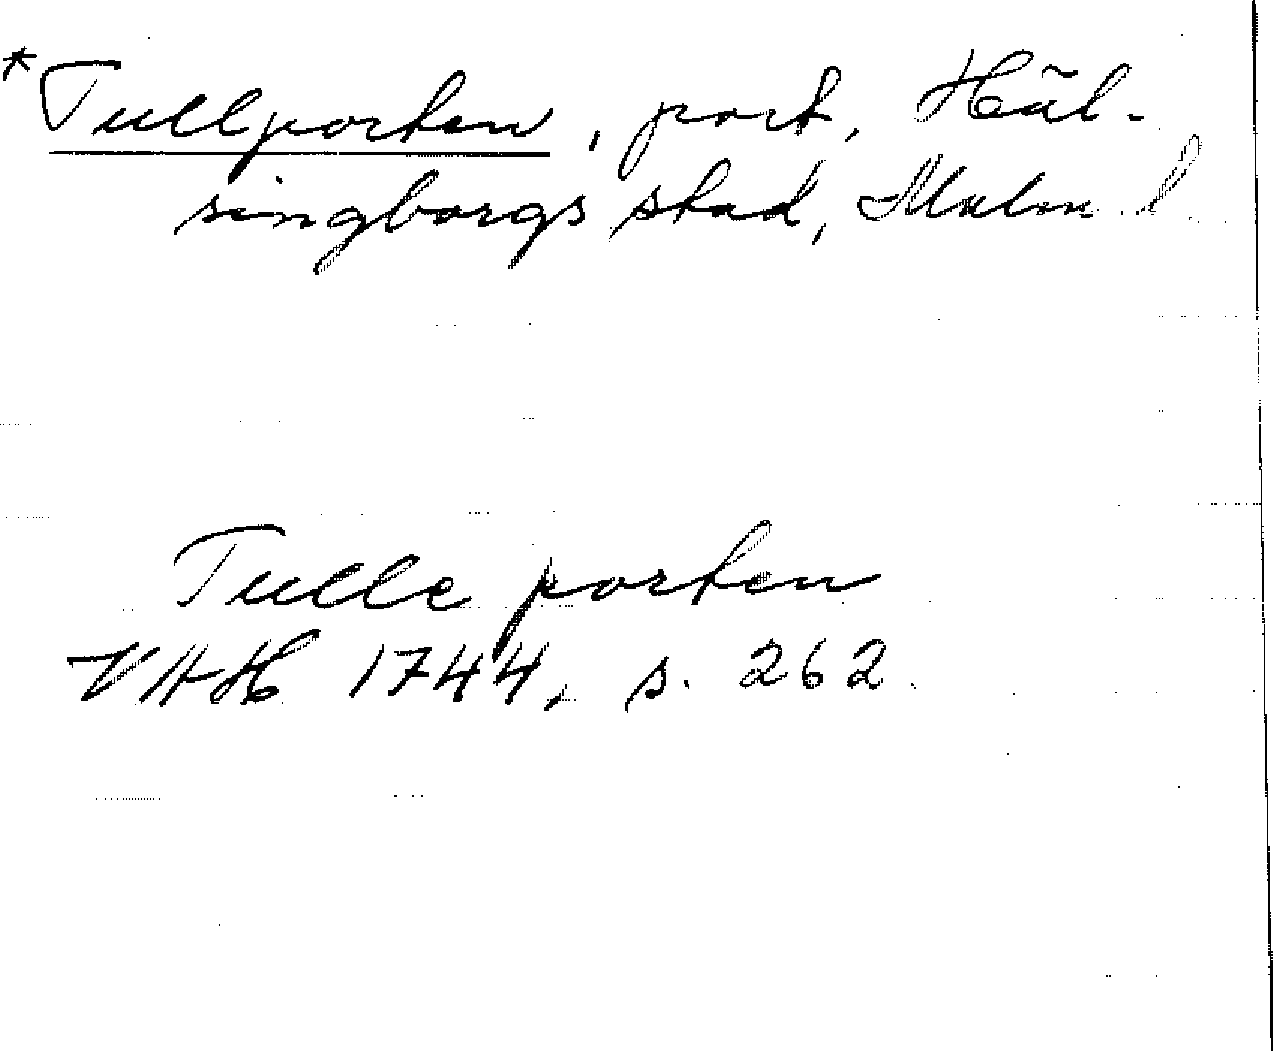 *Tullporten, port, Häl-
singborgs stad, Malm. l.
Tulle porten
VAH 1744, s. 262.